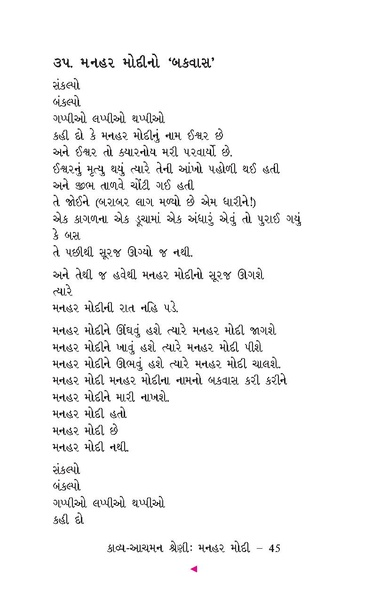 ૩૫. મનહર મોદીનો ‘બકવાસ’
સંકલ્પો
બંકલ્પો
ગપ્પીઓ લપ્પીઓ થપ્પીઓ
કહી દો કે મનહર મોદીનું નામ ઈશ્વર છે
અને ઈશ્વર તો ક્યારનોય મરી પરવાર્યો છે.
ઈશ્વરનું મૃત્યુ થયું ત્યારે તેની આંખો પહોળી થઈ હતી
અને જીભ તાળવે ચોંટી ગઈ હતી
તે જોઈને (બરાબર લાગ મળ્યો છે એમ ધારીને!)
એક કાગળના એક ડૂચામાં એક અંધારું એવું તો પુરાઈ ગયું
કે બસ
તે પછીથી સૂરજ ઊગ્યો જ નથી.
અને તેથી જ હવેથી મનહર મોદીનો સૂરજ ઊગશે
ત્યારે
મનહર મોદીની રાત નહિ પડે.
મનહર મોદીને ઊંઘવું હશે ત્યારે મનહર મોદી જાગશે
મનહર મોદીને ખાવું હશે ત્યારે મનહર મોદી પીશે
મનહર મોદીને ઊભવું હશે ત્યારે મનહર મોદી ચાલશે.
મનહર મોદી મનહર મોદીના નામનો બકવાસ કરી કરીને
મનહર મોદીને મારી નાખશે.
મનહર મોદી હતો
મનહર મોદી છે
મનહર મોદી નથી.
સંકલ્પો
બંકલ્પો
ગપ્પીઓ લપ્પીઓ થપ્પીઓ
કહી દો
કાવ્ય-આચમન શ્રેણીઃ મનહર મોદી – 45